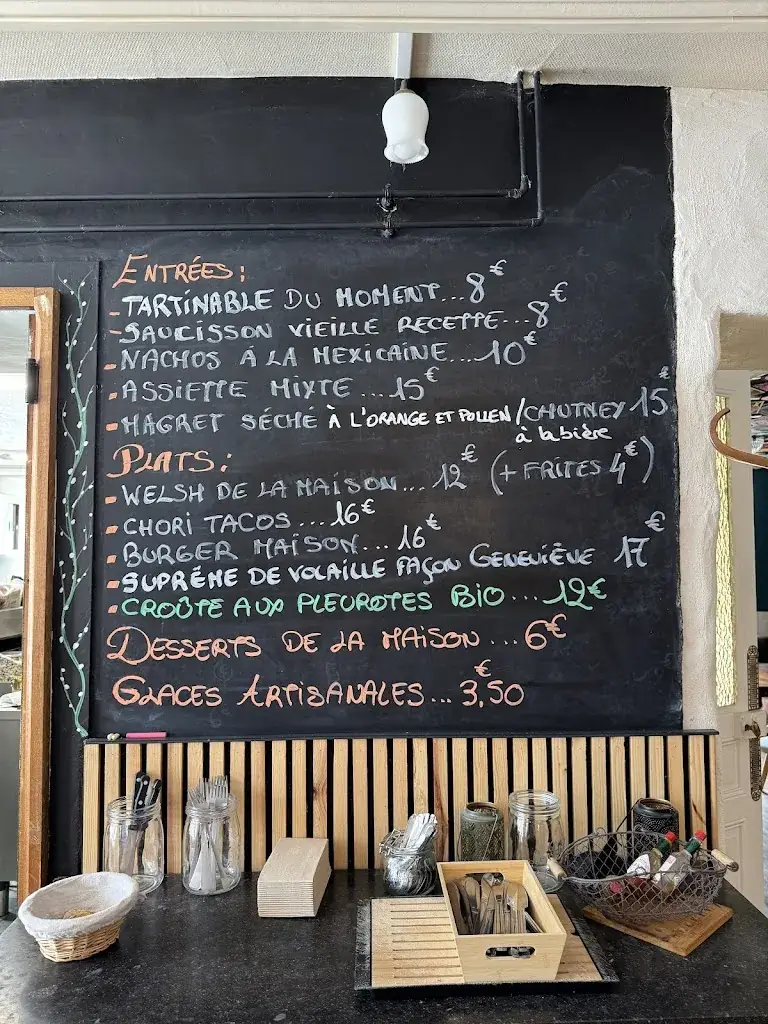 ENTRÉES:
- TARTINABLE DU MOMENT... 8€
- SAUCISSON VIEILLE RECETTE... 8€
- NACHOS À LA MEXICAINE... 10€
- ASSIETTE MIXTE ... 15€
- MAGRET SÉCHÉ À L'ORANGE ET POLLEN / CHUTNEY 15€
à la bière
PLATS:
- WELSH DE LA MAISON... 12€ (+ FRITES 4€)
- CHORI TACOS ... 16€
- BURGER MAISON... 16€
- SUPRÊME DE VOLAILLE FAÇON GENEVIÈVE 17€
- CROÛTE AUX PLEUROTES BIO ... 12€
DESSERTS DE LA MAISON ... 6€
GLACES ARTISANALES ... 3,50€